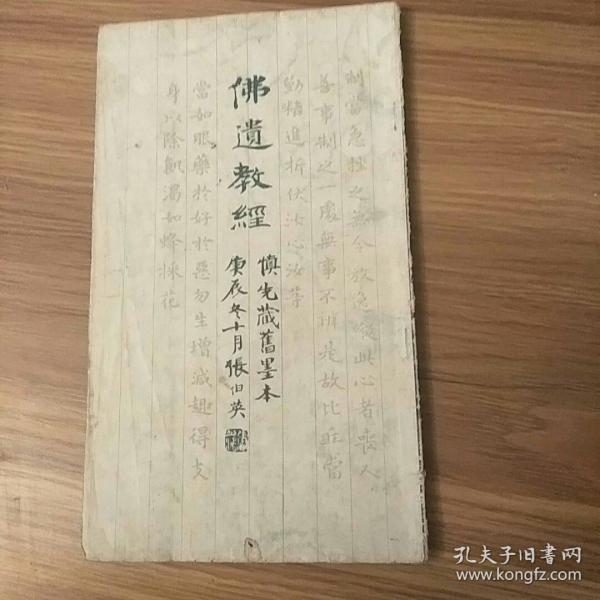 佛遺教經
慎先藏舊墨本
庚辰冬十月張伯英
制當急挫之無令放逸縱此心者喪人
善事制之一處無事不辦是故比丘當
勤精進折伏汝心汝等
當如服藥於好於惡勿生增減趣得支
身以除飢渴如蜂採花
孔夫子旧书网
www.kongfz.com